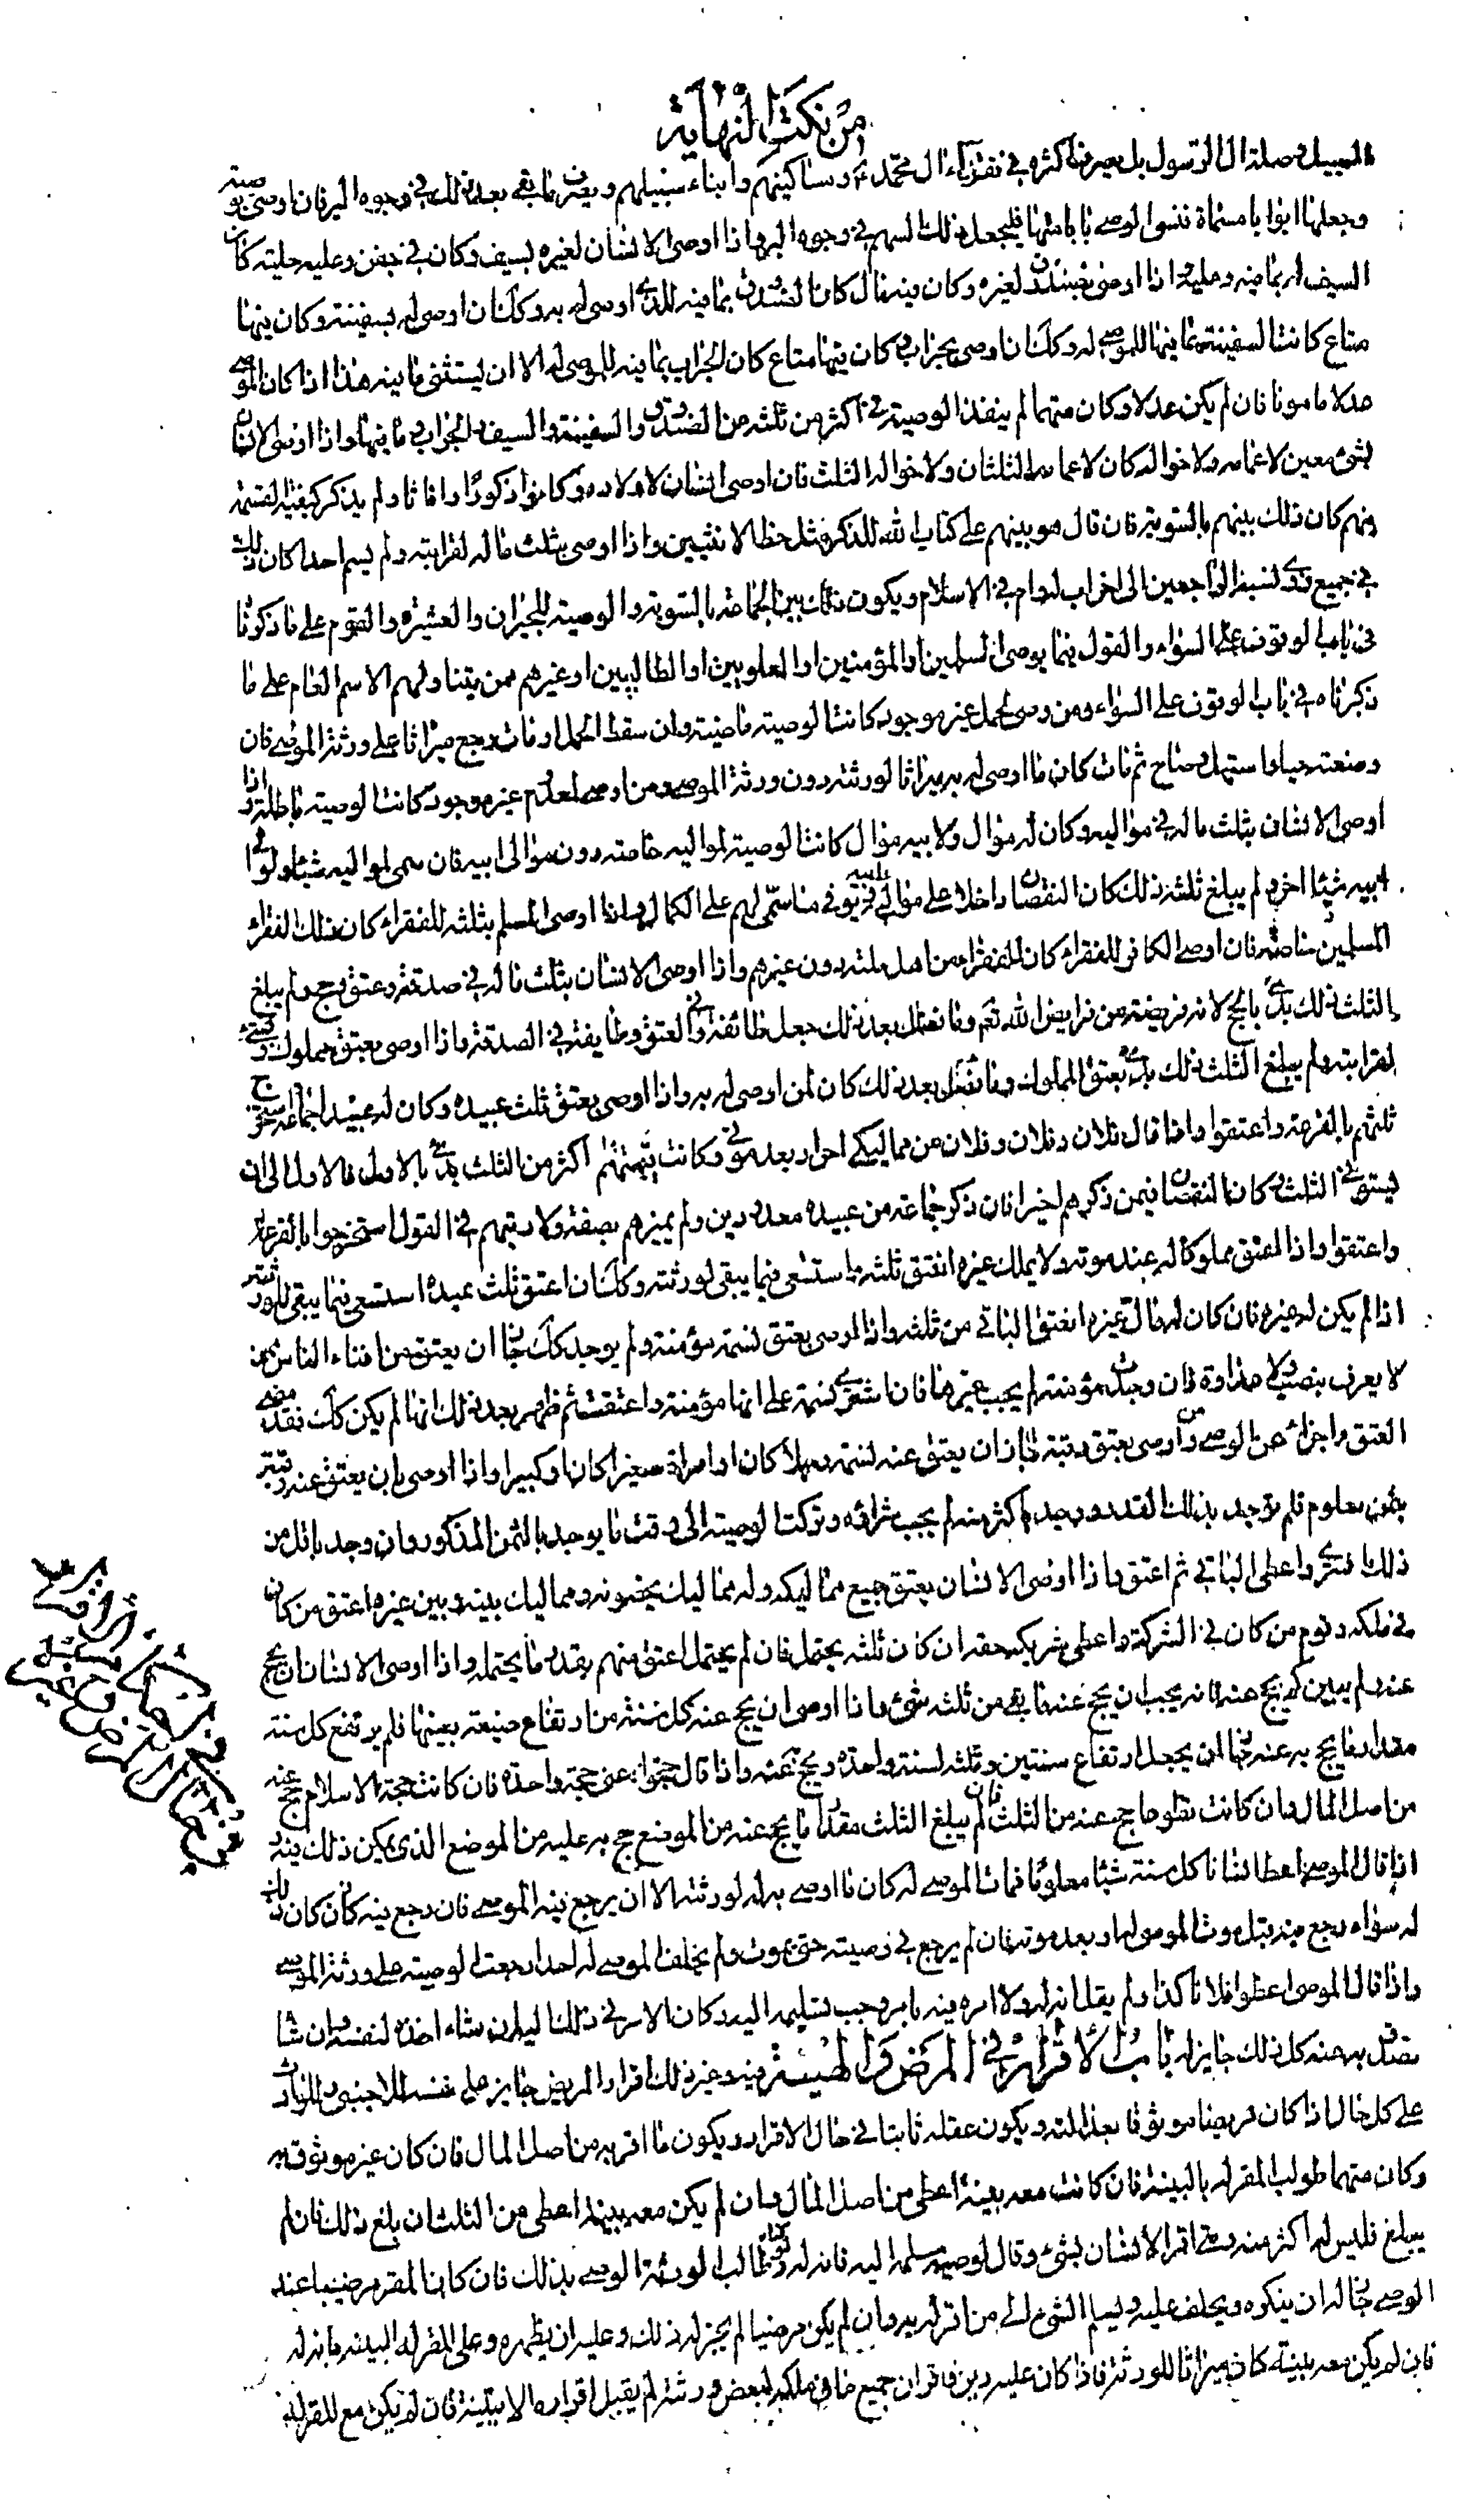 من نكت النهاية
السبيل وصلة ال الرسول بل يصرف اكثره في فقراء ال محمد ع ومساكينهم وابناء سبيلهم ويصرف ما بقى بعد ذلك في وجوه البر فان اوصى بوصية
وجعلها ابوابا مسماة فنسى الوصي بابا منها فليجعل ذلك السهم في وجوه البر واذا اوصى الانسان لغيره بسيف وكان في جفن وعليه حلية كان
السيف له بما فيه وعليه واذا اوصى بصندوق لغيره وكان فيه مال كان الصندوق بما فيه للذي اوصى له به وكذلك ان اوصى له بسفينة وكان فيها
متاع كانت السفينة بما فيها للموصى له وكذلك ان اوصى بجراب وكان فيها متاع كان الجراب بما فيه للموصى له الا ان يستثنى ما فيه هذا اذا كان الموصي
عدلا مامونا فان لم يكن عدلا وكان متهما لم ينفذ الوصية في اكثر من ثلثه من الصندوق والسفينة والسيف والجراب وما فيها واذا اوصى الانسان
بشئ معين لاعمامه ولاخواله كان لاعمامه الثلثان ولاخواله الثلث فان اوصى انسان لاولاده وكانوا ذكورا واناثا ولم يذكر كيفية القسمة
فيهم كان ذلك بينهم بالسوية فان قال هو بينهم على كتاب الله للذكر مثل حظ الانثيين واذا اوصى بثلث ماله لقرابته ولم يسم احدا كان ذلك
في جميع ذوي نسبه الراجعين الى اخر اب له وام في الاسلام ويكون ذلك بين الجماعة بالسوية والوصية للجيران والعشيرة والقوم على ما ذكرنا
في باب الوقوف على السواء والقول فيما يوصى للمسلمين او المؤمنين او العلويين او الطالبيين او غيرهم ممن يتناولهم الاسم العام على ما
ذكرناه في باب الوقوف على السواء ومن وصى لحمل غير موجود كانت الوصية ماضية وان سقط الحمل او مات رجع ميراثا على ورثة الموصي فان
وضعته حيا واستهل وصاح ثم مات كان ما اوصى له به ميراثا لورثته دون ورثة الموصي ومن اوصى لمعدوم غير موجود كانت الوصية باطلة واذا
اوصى الانسان بثلث ماله في مواليه وكان له موال ولابيه موال كانت الوصية لمواليه خاصة دون موالى ابيه فان سمى لمواليه شيئا ولموالي
ابيه شيئا اخر ولم يبلغ ثلثه ذلك كان النقصان داخلا على موالي ابيه ويوفى من سمى لهم على الكمال واذا اوصى المسلم بثلثه للفقراء كان ذلك لفقراء
المسلمين خاصة فان اوصى الكافر للفقراء كان لفقراء من اهل ملته دون غيرهم واذا اوصى الانسان بثلث ماله في صدقة وعتق وحج ولم يبلغ
الثلث ذلك بدئ بالحج لانه فريضة من فرايض الله تعم وما فضل بعد ذلك جعل طائفة في العتق وطايفة في الصدقة واذا اوصى بعتق مملوك وبشئ
لقرابته ولم يبلغ الثلث ذلك بدئ بعتق المملوك وما فضل بعد ذلك كان لمن اوصى له به واذا اوصى بعتق ثلث عبيده وكان له عبيد جماعة استخرج
ثلثهم بالقرعة واعتقوا واذا قال فلان وفلان وفلان من مماليكي احرار بعد موتي وكانت قيمتهم اكثر من الثلث بدئ بالاول فالاول الى ان
يستوفي الثلث وكان النقصان فيمن ذكرهم اخيرا فان ذكر جماعة من عبيده معدودين ولم يميزهم بصفة ولا رتبهم في القول استخرجوا بالقرعة
واعتقوا واذا اعتق مملوكا له عند موته ولا يملك غيره انعتق ثلثه واستسعى فيما يبقى لورثته وكذلك ان اعتق ثلث عبده استسعى فيما يبقى للورثة
اذا لم يكن له غيره فان كان له مال غيره انعتق الباقي من ثلثه واذا اوصى بعتق نسمة مؤمنة ولم يوجد كذلك جاز ان يعتق من افناء الناس ممن
لا يعرف بنصب ولا عداوة فان وجدت مؤمنة لم يجب غيرها فان اشترى نسمة على انها مؤمنة واعتقت ثم ظهر بعد ذلك انها لم يكن كذلك فقد مضى
العتق واجزاء عن الوصي ومن اوصى بعتق رقبة جاز ان يعتق عنه نسمة رجلا كان او امراة صغيرا كان او كبيرا واذا اوصى بان يعتق عنه رقبة
بثمن معلوم فلم توجد بذلك القدر ووجد باكثر منه لم يجب شراؤه وتركت الوصية الى وقت ما يوجد بالثمن المذكور وان وجد باقل من
ذلك اشترى واعطى الباقي ثم اعتق واذا اوصى الانسان بعتق جميع مماليكه وله مماليك يخصونه ومماليك بينه وبين غيره اعتق من كان
في ملكه وقوم من كان في الشركة واعطى شريكه حقه ان كان ثلثه يحتمل فان لم يحتمل اعتق منهم بقدر ما يحتمله واذا اوصى الانسان ان يحج
عنه ولم يبين كم يحج عنه فانه يجب ان يحج عنه ما بقى من ثلثه شئ واذا اوصى ان يحج عنه كل سنة من ارتفاع ضيعة بعينها فلم يرتفع كل سنة
مقدار ما يحج به عنه جاز ان يجعل ارتفاع سنتين وثلثة لسنة واحدة ويحج عنه واذا قال حجوا عني حجة واحدة فان كانت حجة الاسلام حج عنه
من اصل المال وان كانت تطوعا حج عنه من الثلث فان لم يبلغ الثلث مقدار ما يحج عنه من الموضع حج به عليه من الموضع الذي يمكن ذلك فيه
اذا قال الموصي اعطوا انسانا كل سنة شيئا معلوما فمات الموصى له كان ما اوصى به له لورثته الا ان يرجع فيه الموصي فان رجع فيه كان ذلك
له سواء رجع فيه قبل موت الموصى له او بعد موته فان لم يرجع في وصيته حتى يموت ولم يخلف الموصى له احدا رجعت الوصية على ورثة الموصي
واذا قال الموصي اعطوا فلانا كذا ولم يقل انه له ولا امره فيه بامر وجب تسليمه اليه وكان الامر في ذلك اليه ان شاء اخذه لنفسه وان شاء
تصدق به عنه كل ذلك جايز له باب الاقرار في المرض والهبة فيه وغير ذلك اقرار المريض جايز على نفسه للاجنبي وللوارث
على كل حال اذا كان مرضيا موثوقا بعدالته ويكون عقله ثابتا في حال الاقرار ويكون ما اقر به من اصل المال فان كان غير موثوق به
وكان متهما طولب المقر له بالبينة فان كانت معه بينة اعطى من اصل المال وان لم يكن معه بينة اعطى من الثلث ان بلغ ذلك فان لم
يبلغ فليس له اكثر منه ومتى اقر الانسان بشئ وقال لوصيه سلمه اليه فانه له وطالب الورثة الوصي بذلك فان كان المقر مرضيا عند
الوصي جاز له ان ينكره ويحلف عليه ويسلم الشئ الى من اقر له به وان لم يكن مرضيا لم يجز له ذلك وعليه ان يظهره وعلى المقر له البينة بانه له
فان لم يكن معه بينة كان ميراثا للورثة واذا كان عليه دين فاقر ان جميع ما في ملكه لبعض ورثته لم يقبل اقراره الا ببينة فان لم يكن مع المقر له